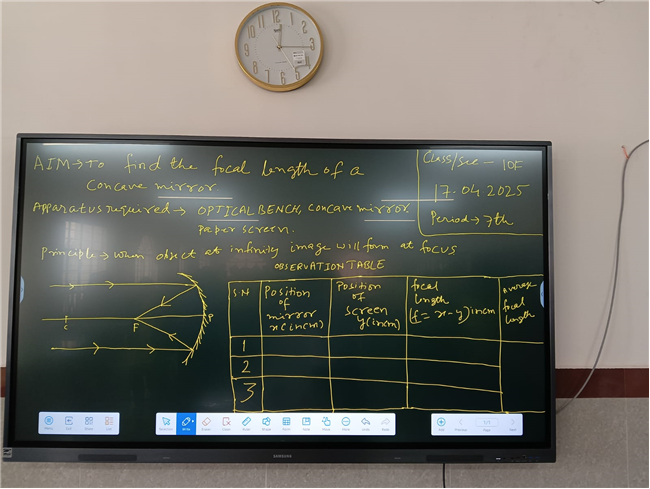 AIM → To find the focal length of a
Concave mirror
Apparatus required → OPTICAL BENCH, Concave mirror
paper screen.
Principle → when object at infinity image will form at focus
Class/Sec - 10F
17-04 2025
Period → 7th
OBSERVATION TABLE
S.N
Position of mirror x (in cm)
Position of screen y (in cm)
focal length (f = x-y) in cm
Average focal length
1
2
3
C F P
SAMSUNG